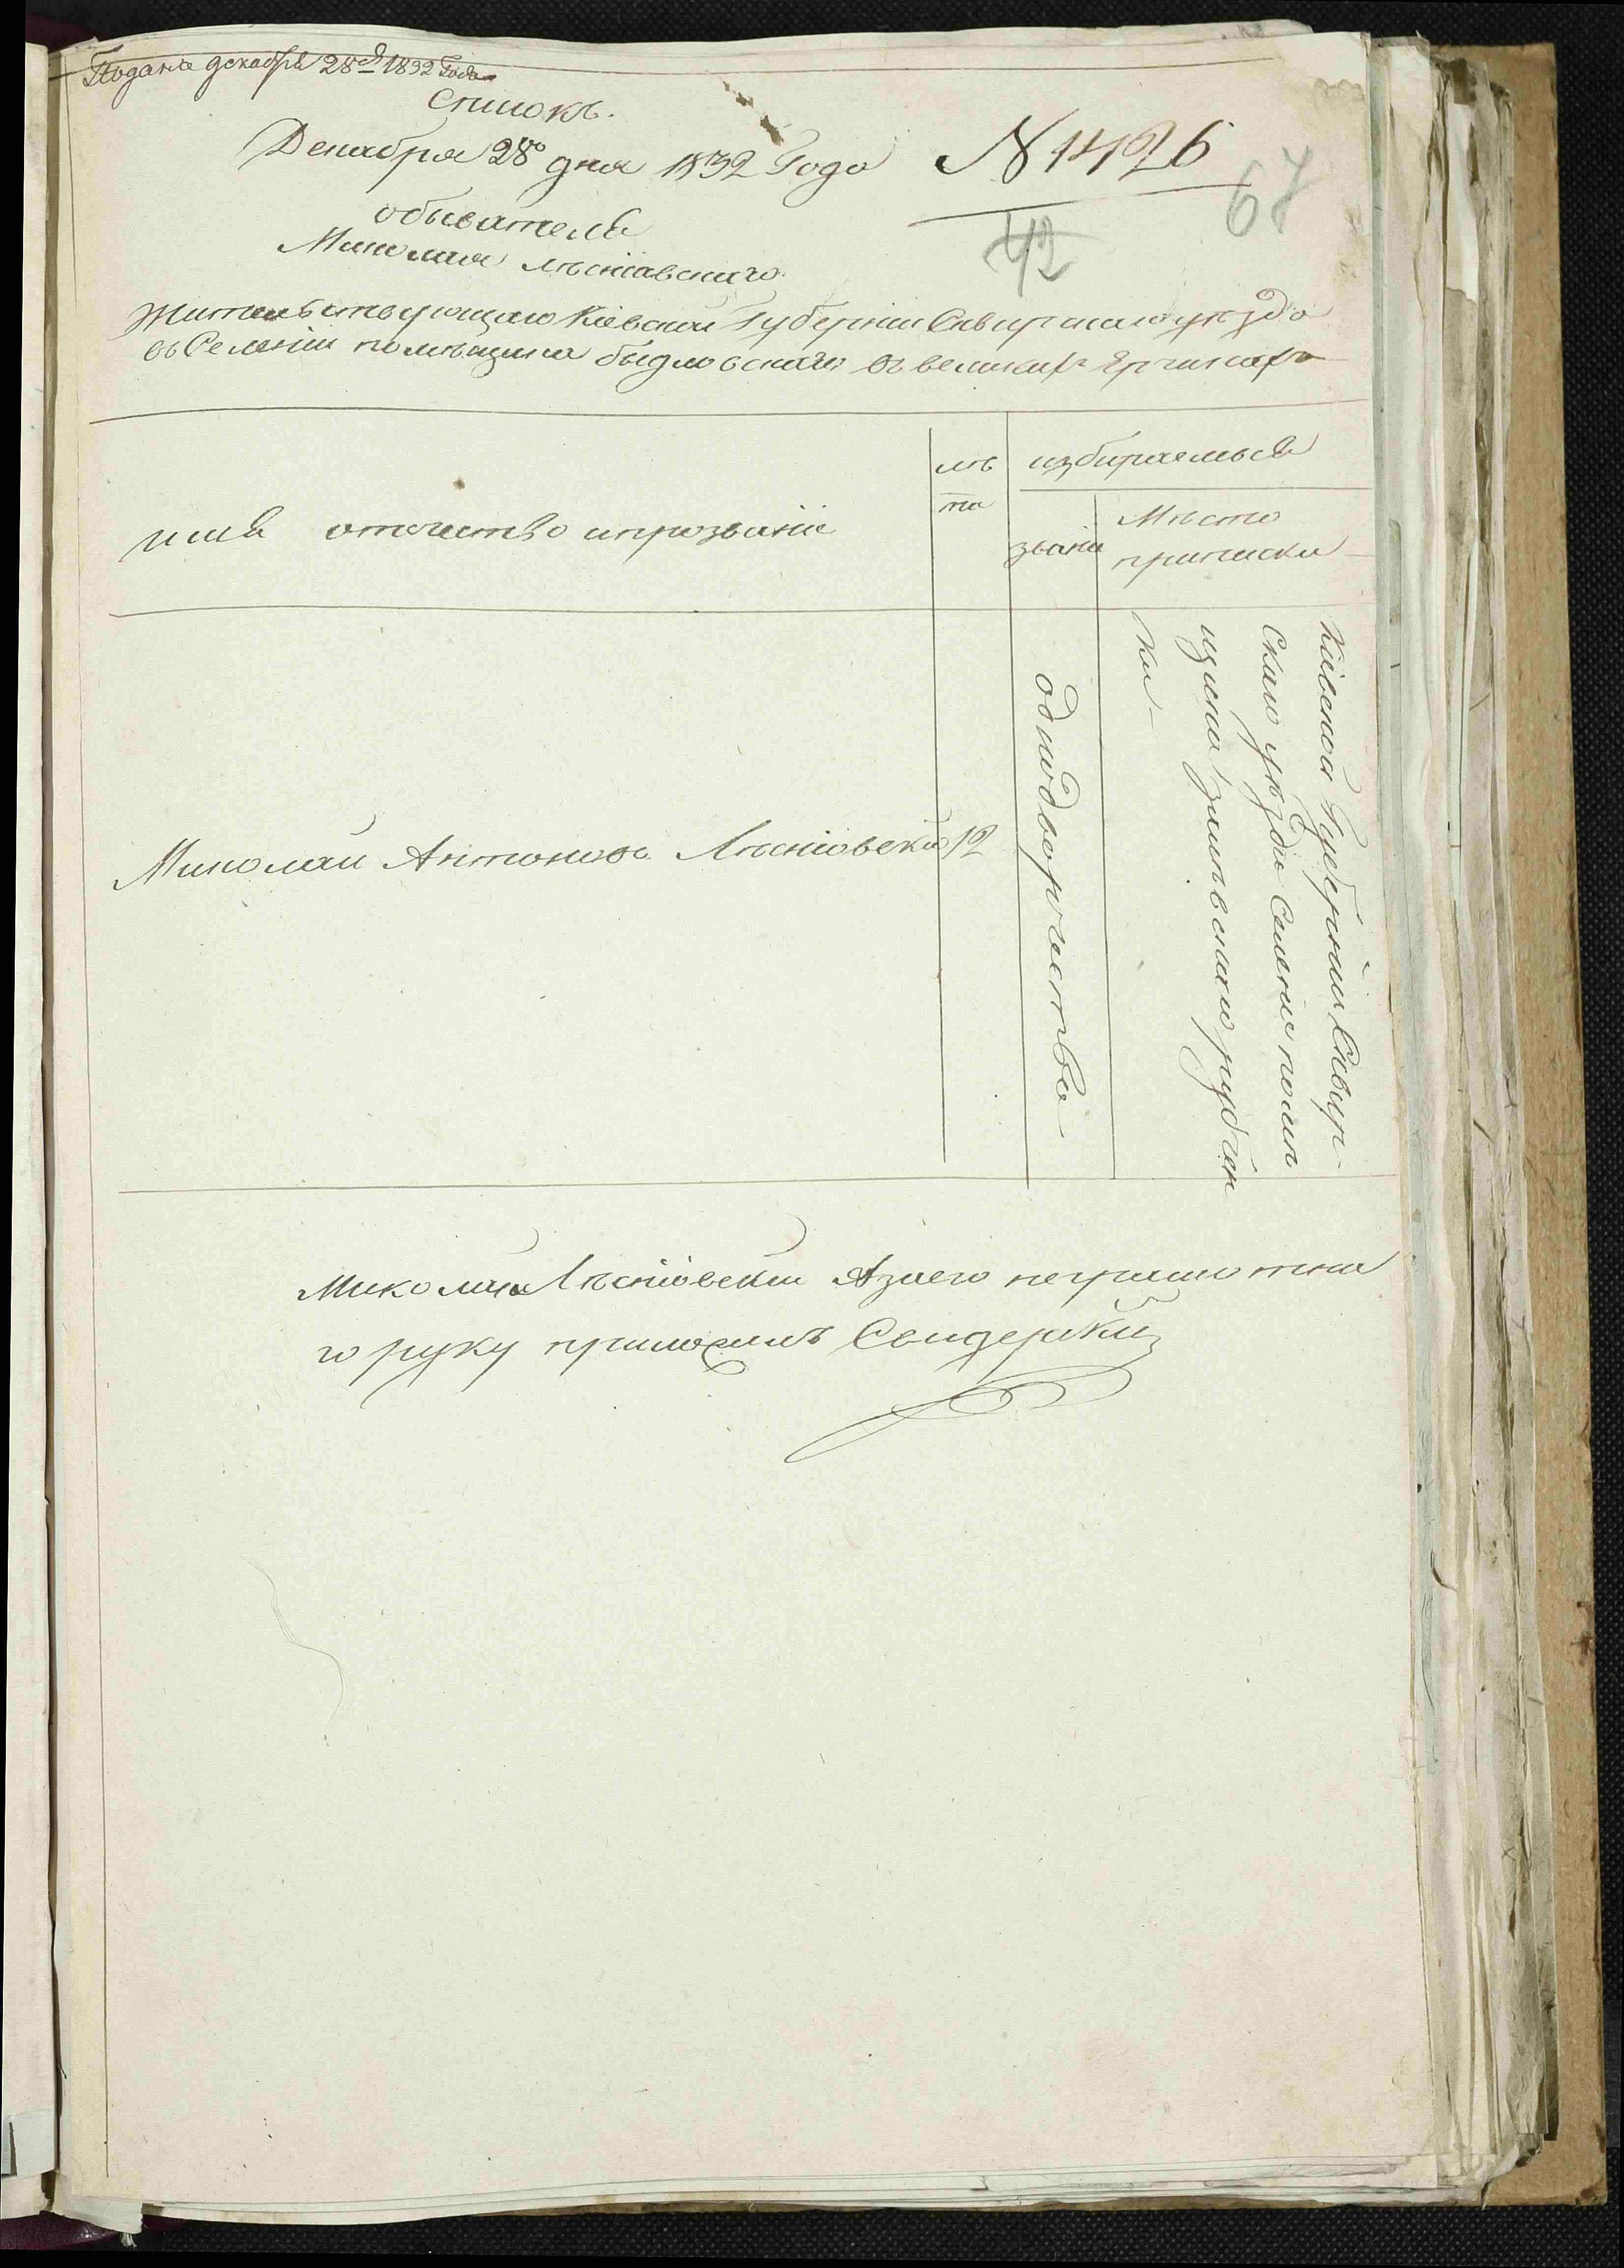 Подана декабря 28го 1832 Года
Списокъ.
Декабря 28го дня 1832 Года N 1426
67
42
обывателя
Миколая Лѣснiовскаго
Жительствующаго Кiевской Губернiи Сквирскаго уѣзда
въ Селенiи помѣщика быдловскаго въ великихъ Ерчикахъ
имя отечество и прозванiе
лѣ
та
избираемыя
званiя
Мѣсто
приписки
Миколай Антоновъ Лѣснiовскiй 12
однодворчество
Кiевской Губернiи Сквир-
скаго уѣзда Селенiе помѣ
щика залѣвскаго рубчен
ки
Миколай Лѣснiовскiй А за его неграмотна
го руку приложилъ Свидерскiй